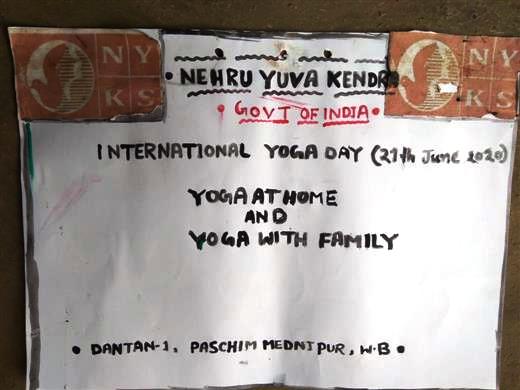 NY
KS
NY
KS
• NEHRU YUVA KENDRA
• GOVT OF INDIA •
INTERNATIONAL YOGA DAY (21th June 2020)
YOGA AT HOME
AND
YOGA WITH FAMILY
• DANTAN-1, PASCHIM MEDNIPUR, W.B •